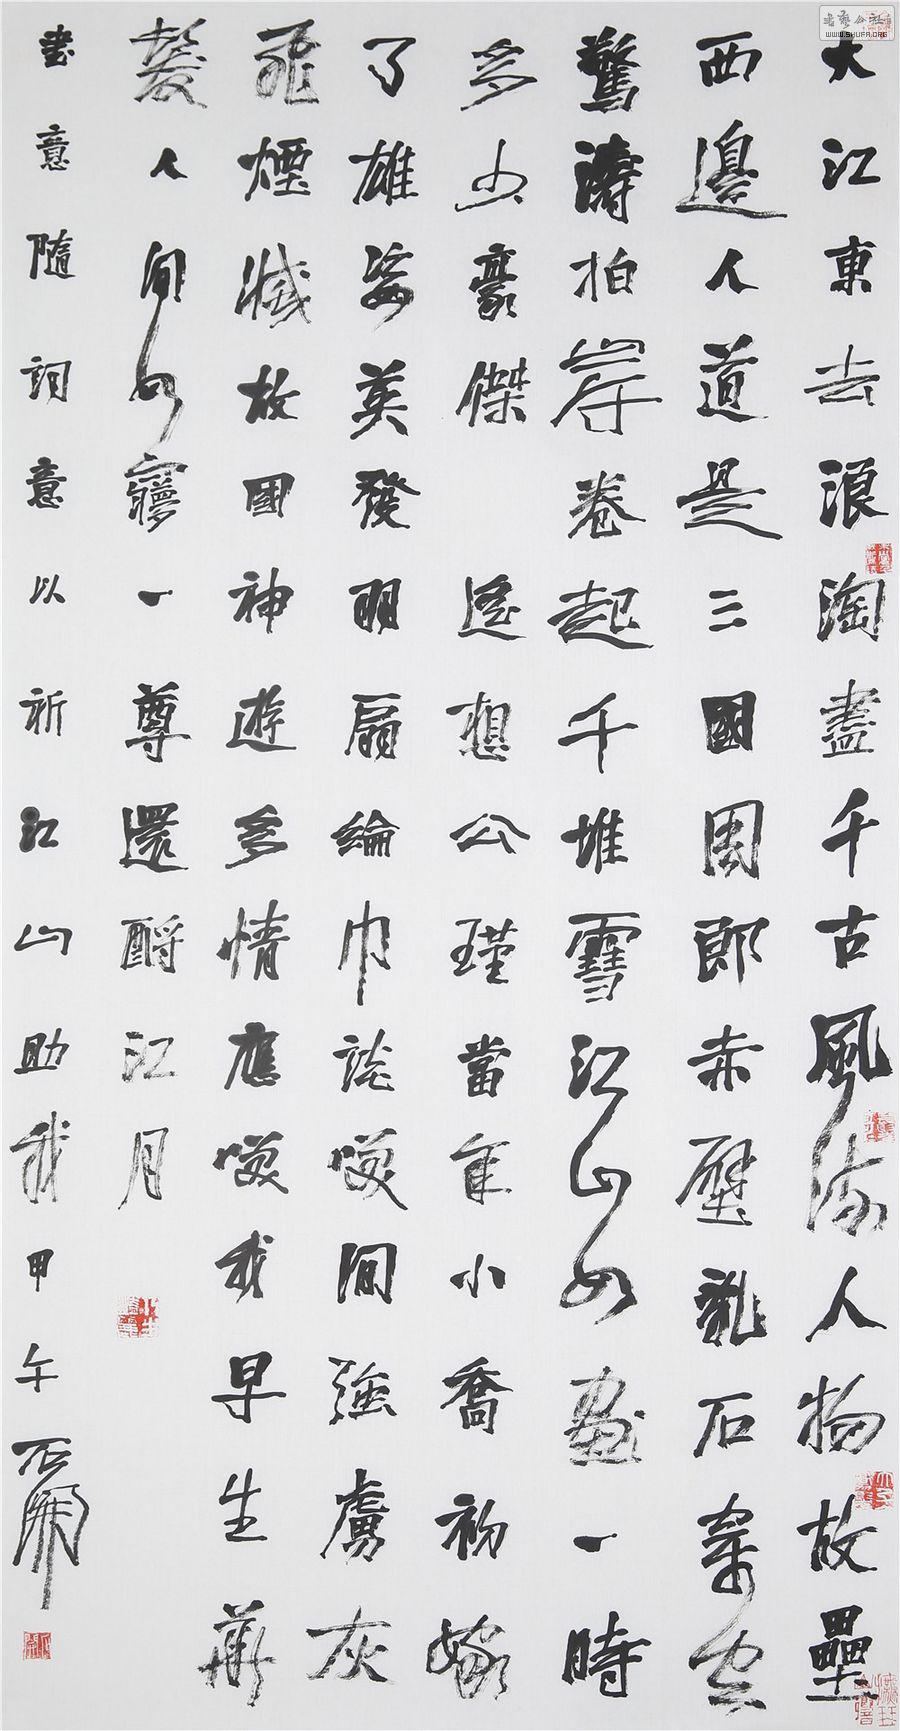 大江東去浪淘盡千古風流人物故壘
西邊人道是三國周郎赤壁亂石穿空
驚濤拍岸卷起千堆雪江山如畫一時
多少豪傑 遙想公瑾當年小喬初嫁
了雄姿英發羽扇綸巾談笑間強虜灰
飛煙滅故國神遊多情應笑我早生華
髮人間如夢一尊還酹江月
書意隨詞意以祈江山助我甲午石開
書藝公社
WWW.SHUFA.ORG